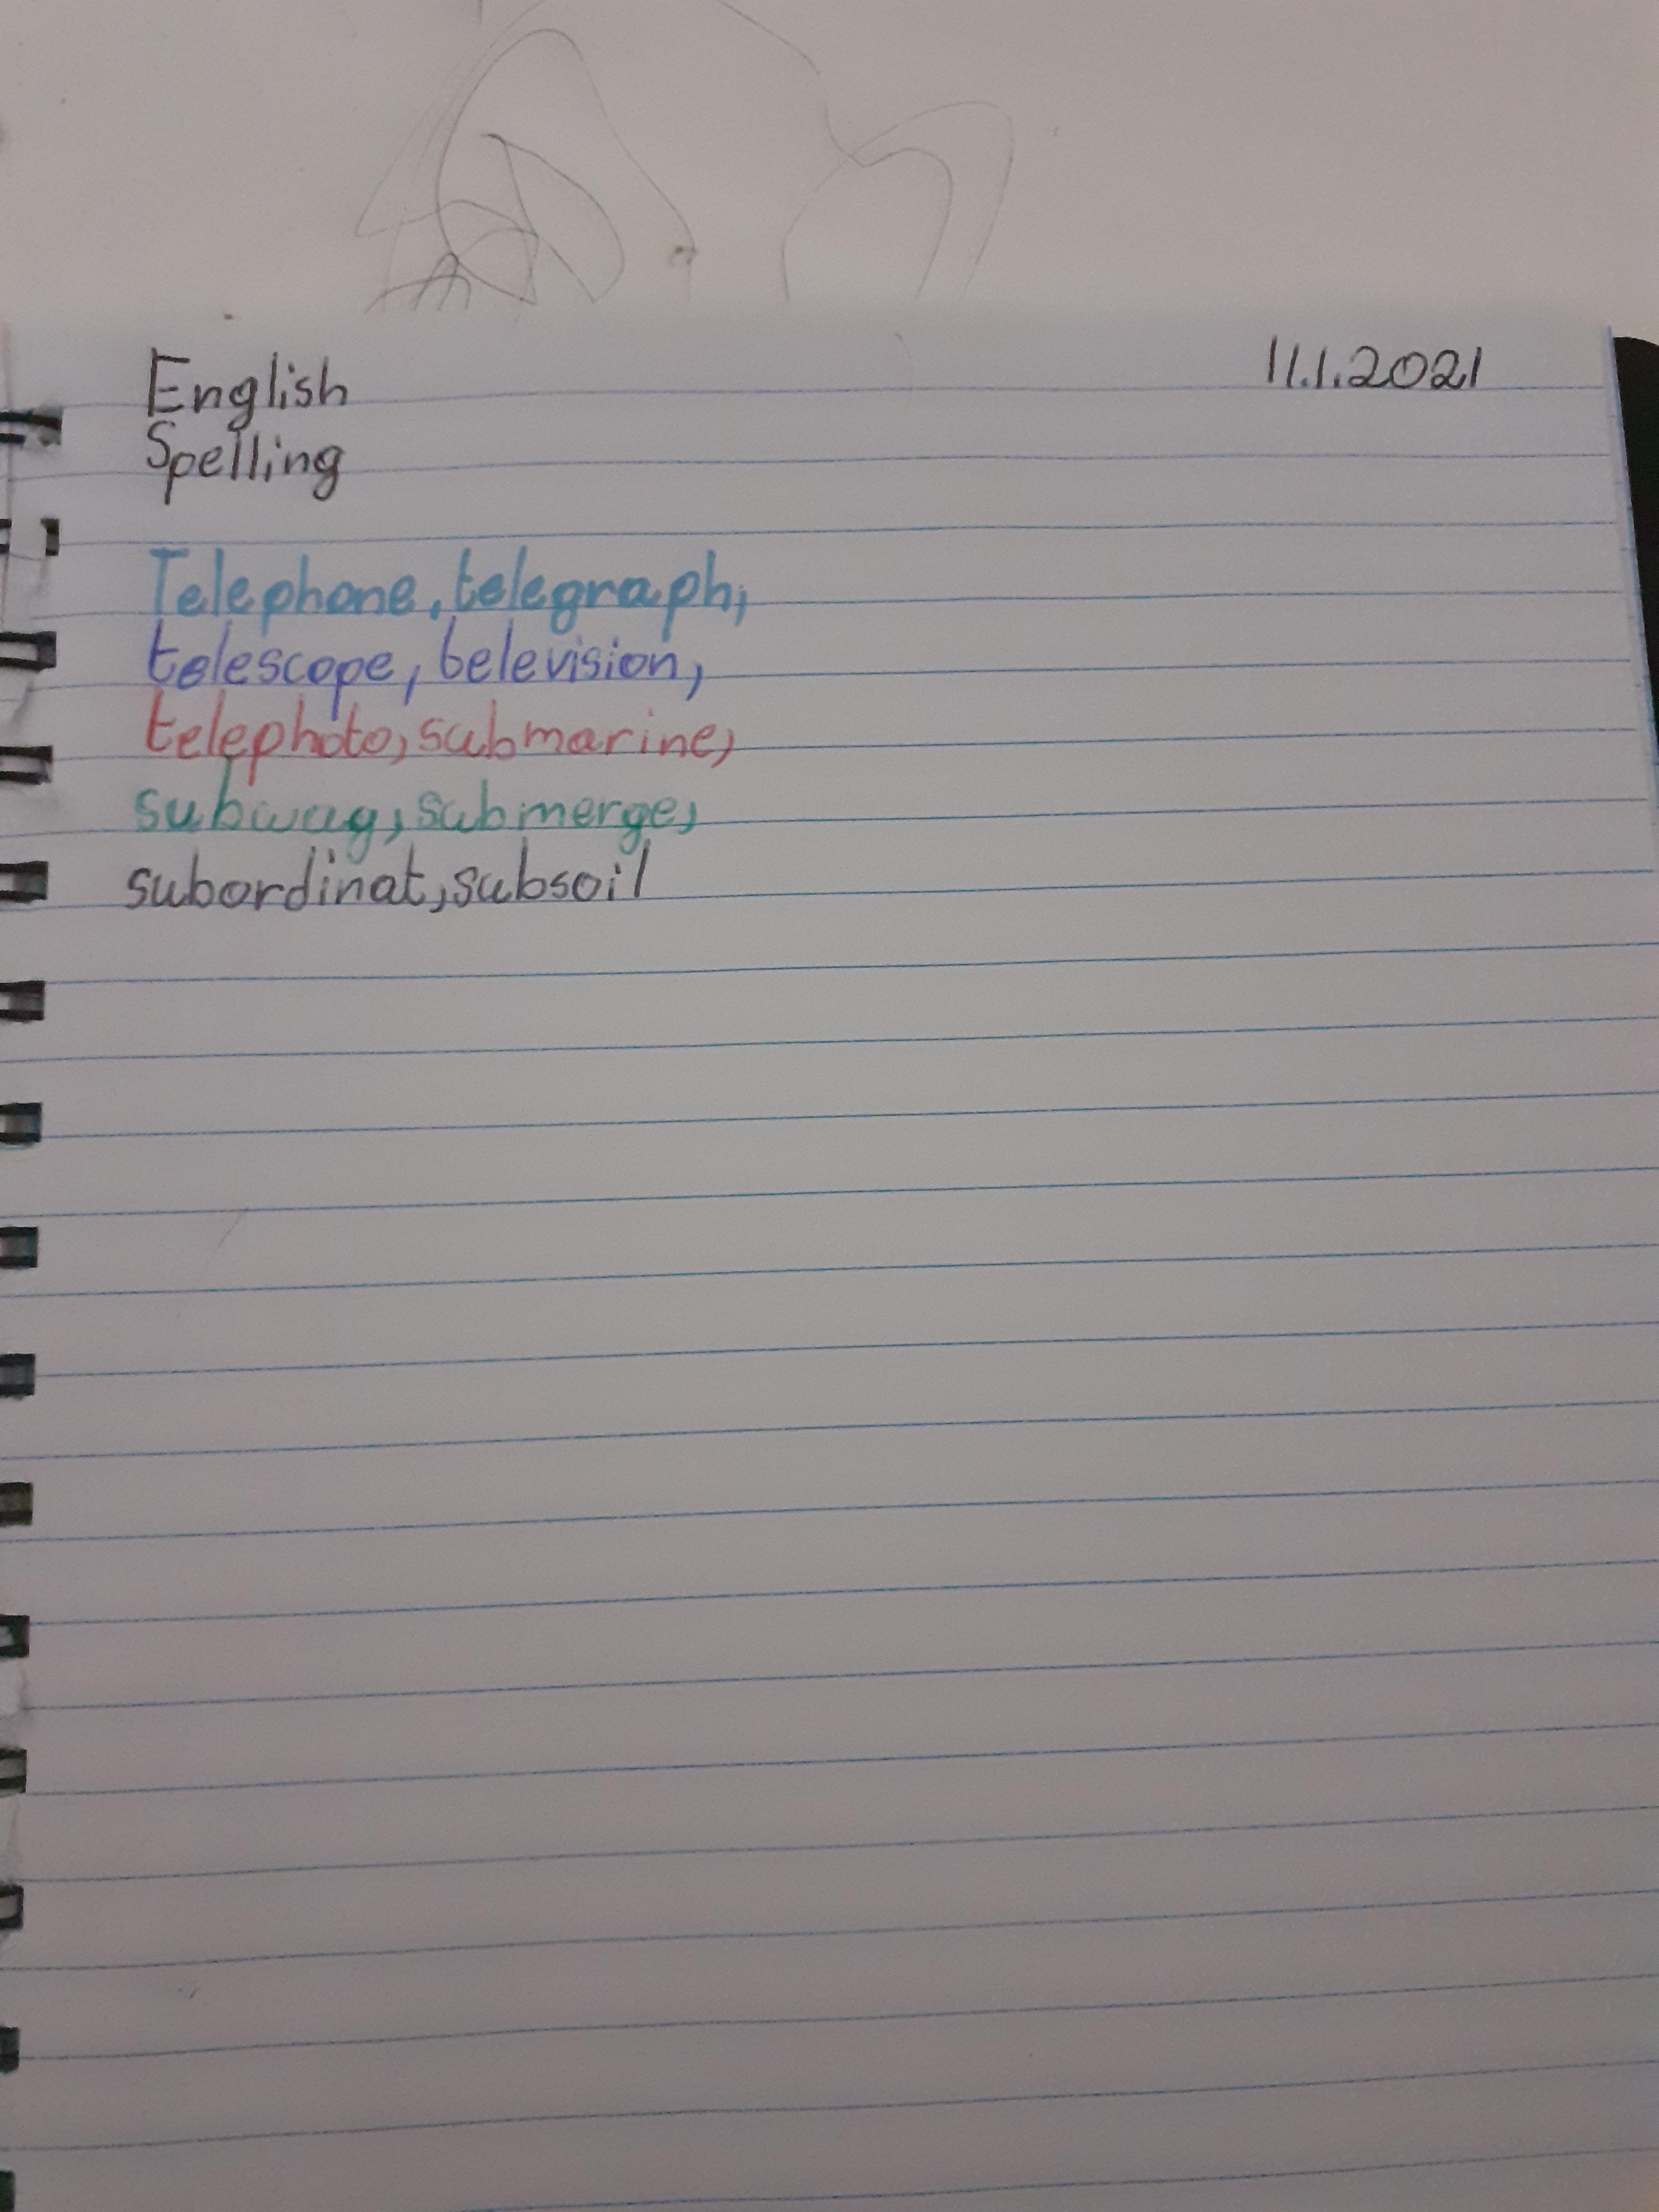 English 11.1.2021
Spelling
Telephone, telegraph,
telescope, television,
telephoto, submarine,
subway, submerge,
subordinat, subsoil